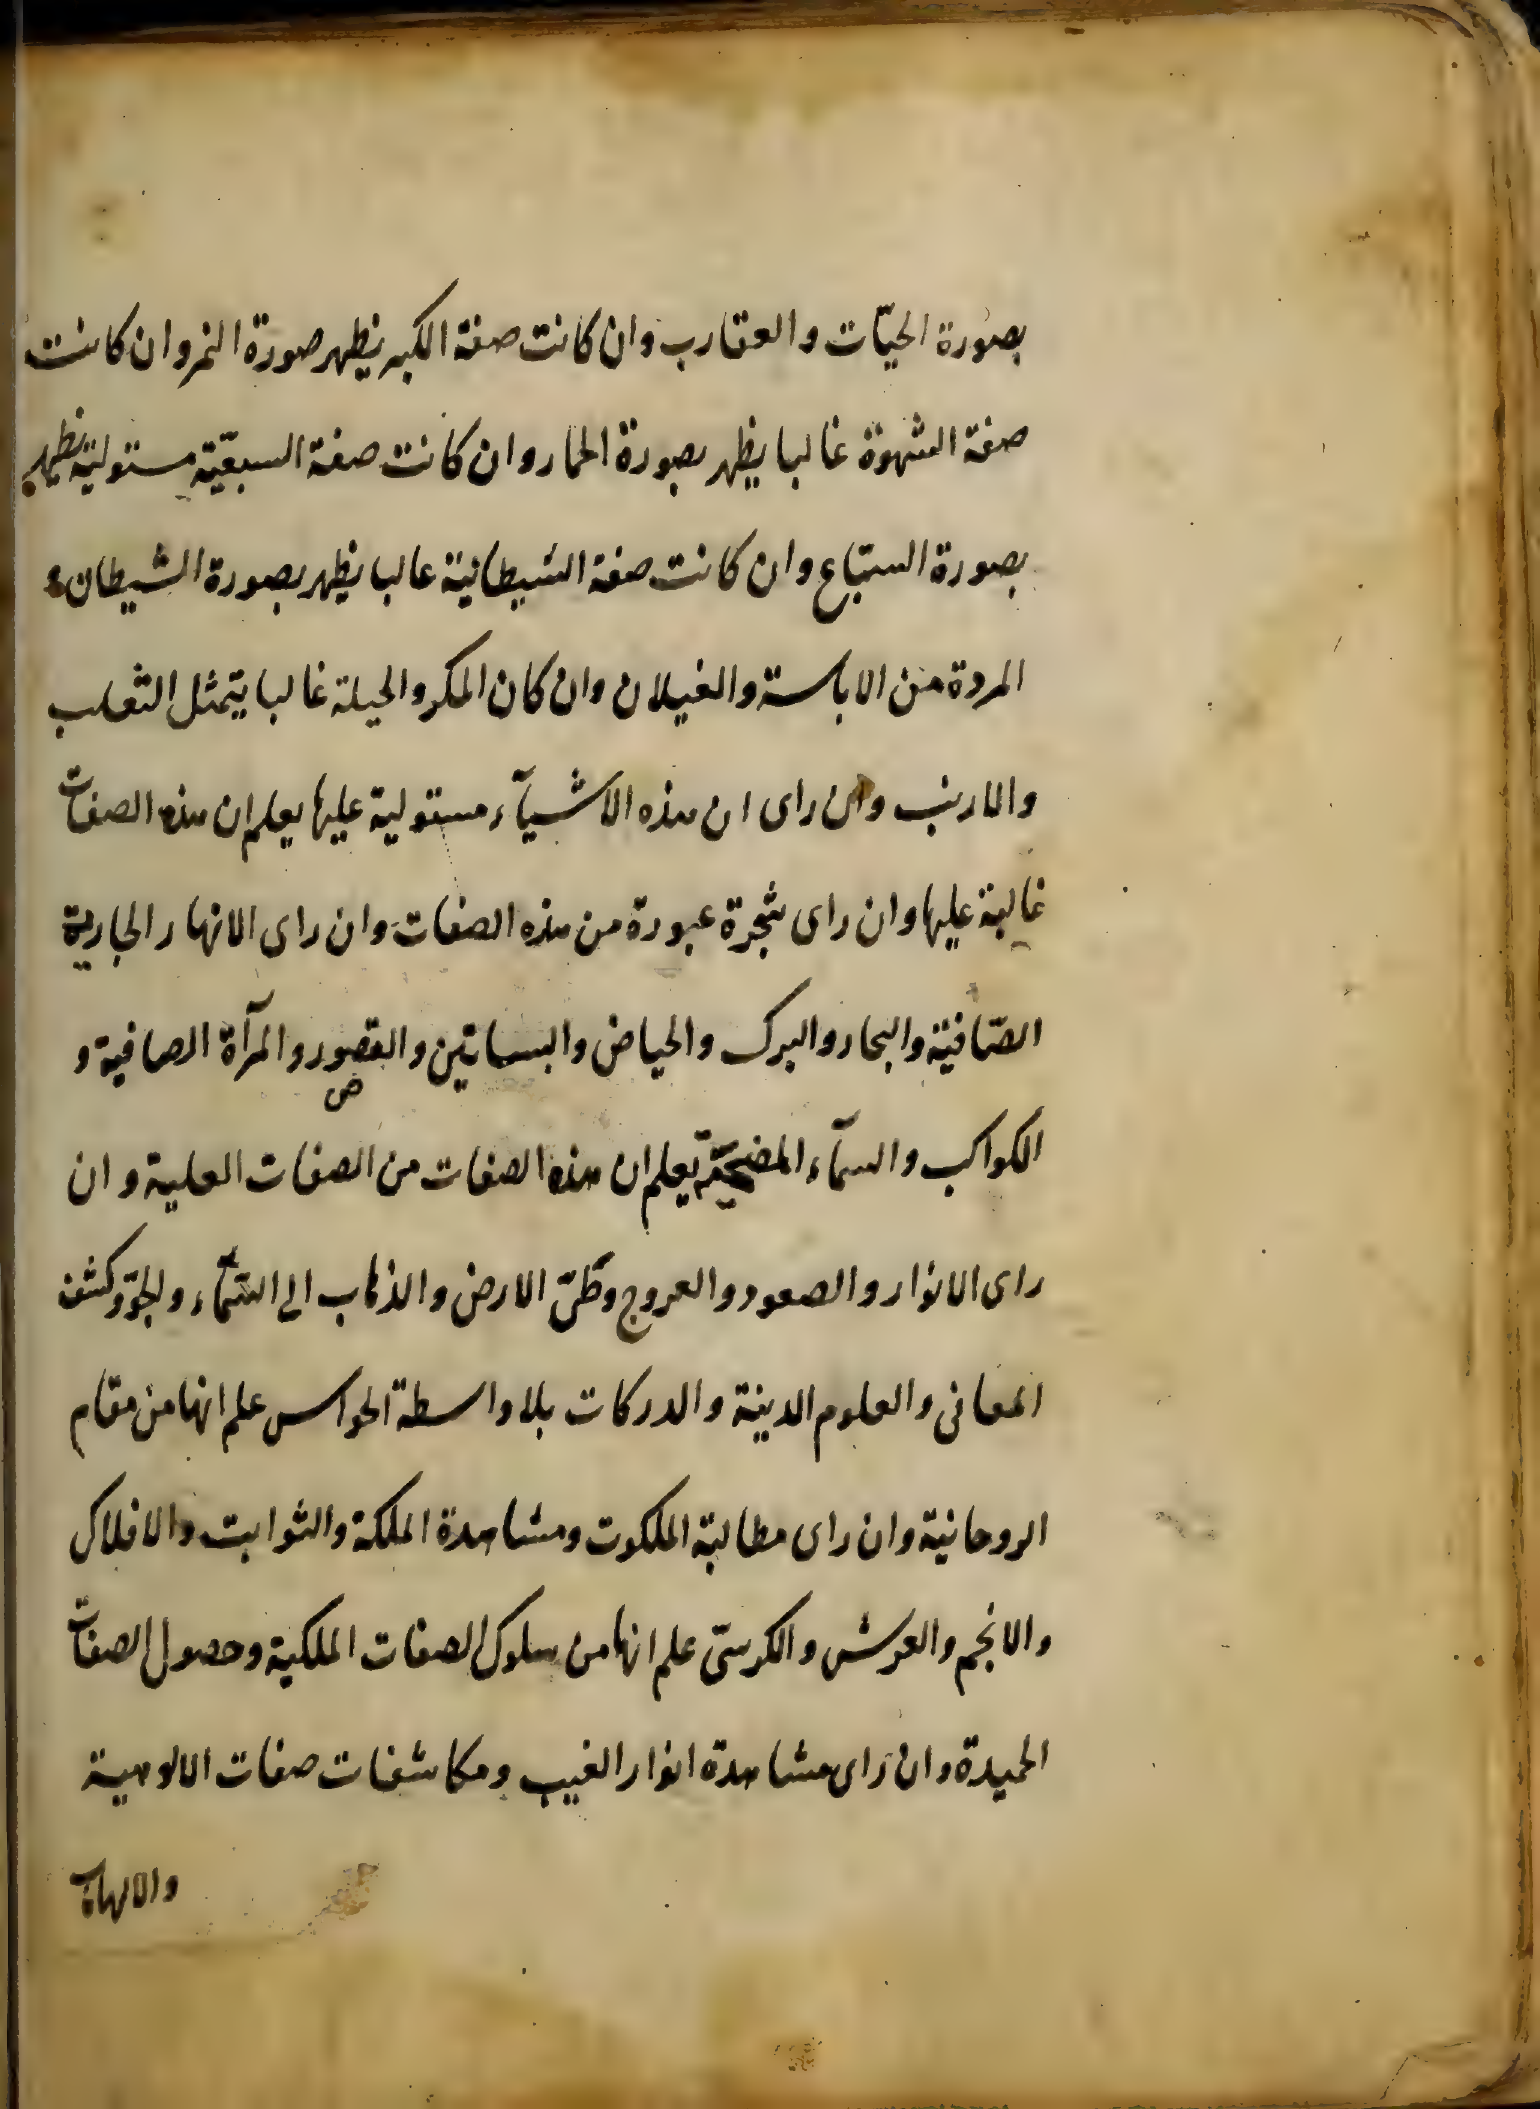 بصورة الحيّات والعقارب وان كانت صفة الكبر يظهر صورة النمر وان كانت
صفة الشهوة غالبا يظهر بصورة الحمار وان كانت صفة السبعيّة مستولية يظهر
بصورة السباع وان كانت صفة الشيطانية غالبا يظهر بصورة الشيطان و
المردة من الابالسة والغيلان وان كان المكر والحيلة غالبا يتمثل الثعلب
والارنب وان راى ان هذه الاشيآء مستولية عليها يعلم ان هذه الصفات
غالبة عليها وان راى شجرة عبورة من هذه الصفات وان راى الانهار الجارية
الصّافية والبحار والبرك والحياض والبساتين والقصور والمرآة الصافية و
الكواكب والسمآء المضحيّة يعلم ان هذه الصفات من الصفات العلية وان
راى الانوار والصعود والعروج وطىّ الارض والذهاب الى السّمآء والجوّ وكشف
المعانى والعلوم الدينة والدركات بلا واسطة الحواس علم انها من مقام
الروحانية وان راى مطالبة الملكوت ومشاهدة الملكة والثوابت والافلاك
والانجم والعرش والكرسىّ علم انها من سلوك الصفات الملكية وحصول الصفات
الحميدة وان راى مشاهدة انوار الغيب ومكاشفات صفات الالوهية